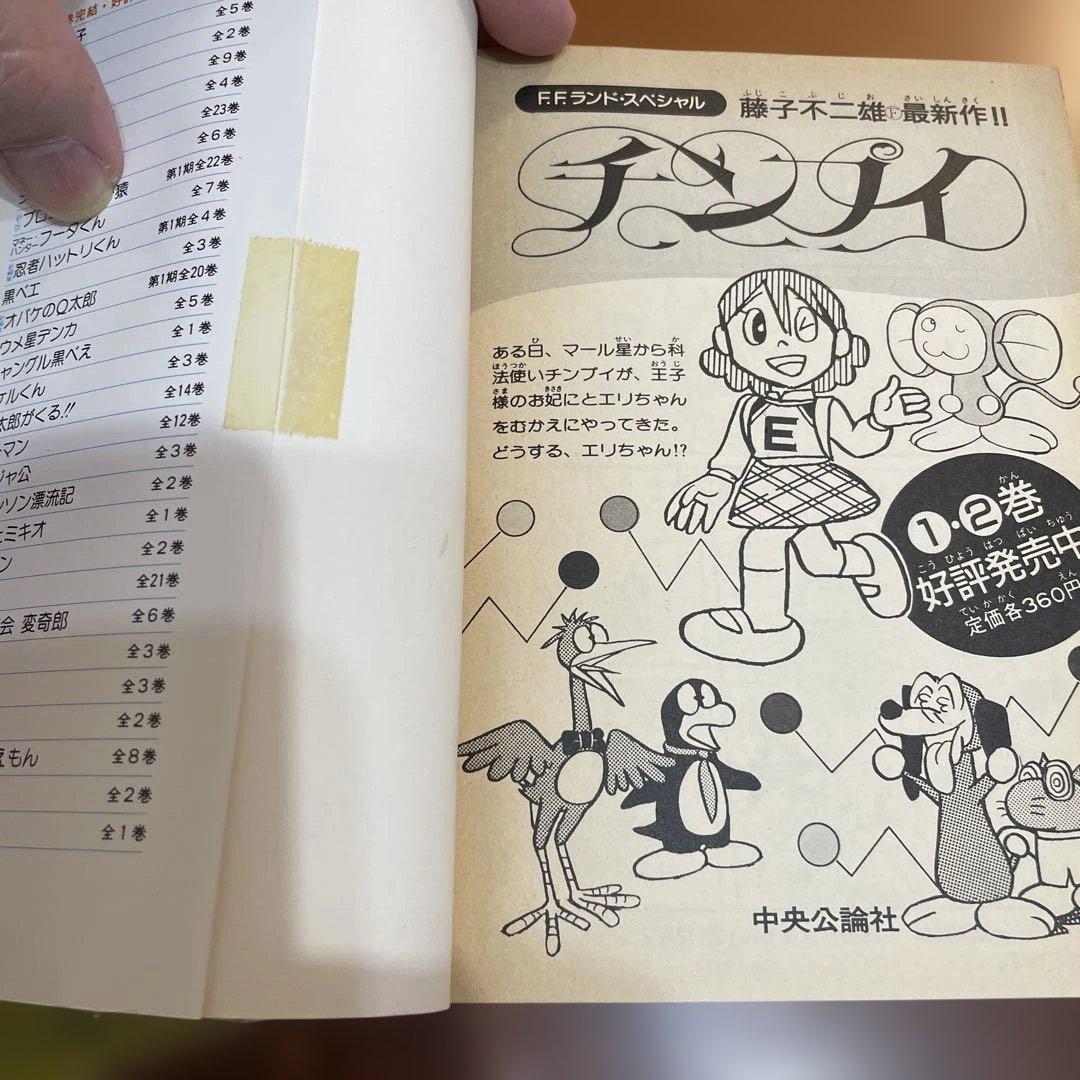 巻完結・好評
子 全5巻
全2巻
全9巻
全4巻
全23巻
全6巻
猿 第1期全22巻
プロ 全7巻
マネー・ハンターフータくん 第1期全4巻
忍者ハットリくん 全3巻
黒ベエ 第1期全20巻
オバケのQ太郎 全5巻
ウメ星デンカ 全1巻
ャングル黒べえ 全3巻
ケルくん 全14巻
太郎がくる!! 全12巻
ーマン 全3巻
ジャ公 全2巻
ンソン漂流記 全1巻
ヒミキオ 全2巻
ン 全21巻
会 変奇郎 全6巻
全3巻
全3巻
全2巻
えもん 全8巻
全2巻
全1巻
F.F.ランド・スペシャル
藤子不二雄Ⓕ最新作!!
ふじこふじお さいしんさく
チンプイ
ある日、マール星から科
法使いチンプイが、王子
様のお妃にとエリちゃん
をむかえにやってきた。
どうする、エリちゃん!?
E
1・2巻
好評発売中
定価各360円
中央公論社